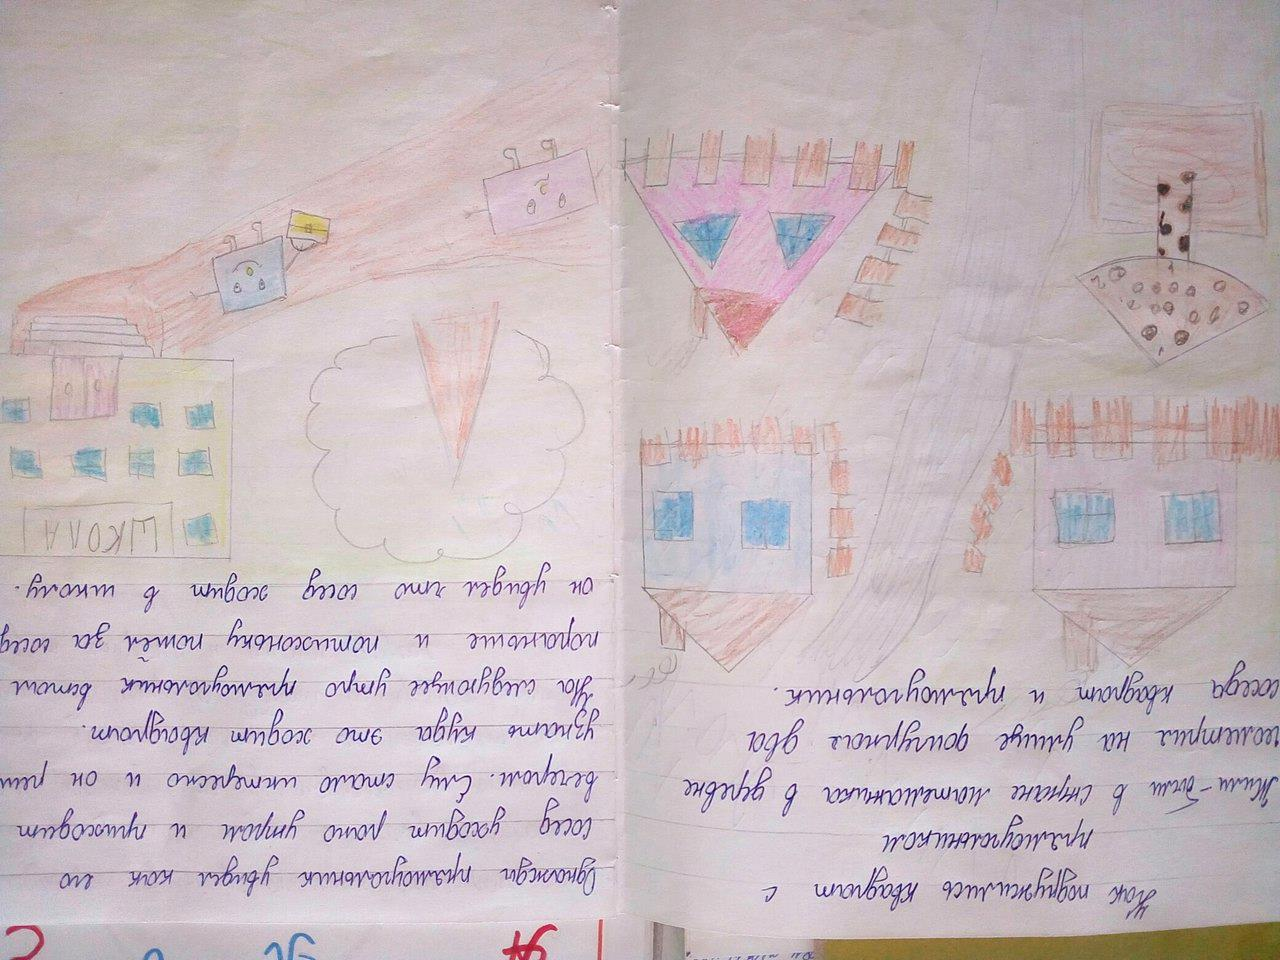 Как подружились квадрат с
прямоугольником
Жили-были в стране математика в деревне
геометрия на улице фигурная два
соседа квадрат и прямоугольник.
Однажди прямоугольник увидел как его
сосед уходит рано утром и приходит
вечером. Ему стало интересно и он реш
узнать куда это ходит квадрат.
На следующее утро прямоугольник встал
пораньше и потихоньку пошёл за сосед
он увидел что сосед ходит в школу.
ШКОЛА